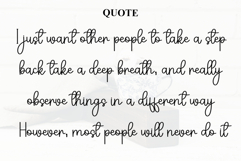 QUOTE
I just want other people to take a step
back take a deep breath, and really
observe things in a different way
However, most people will never do it